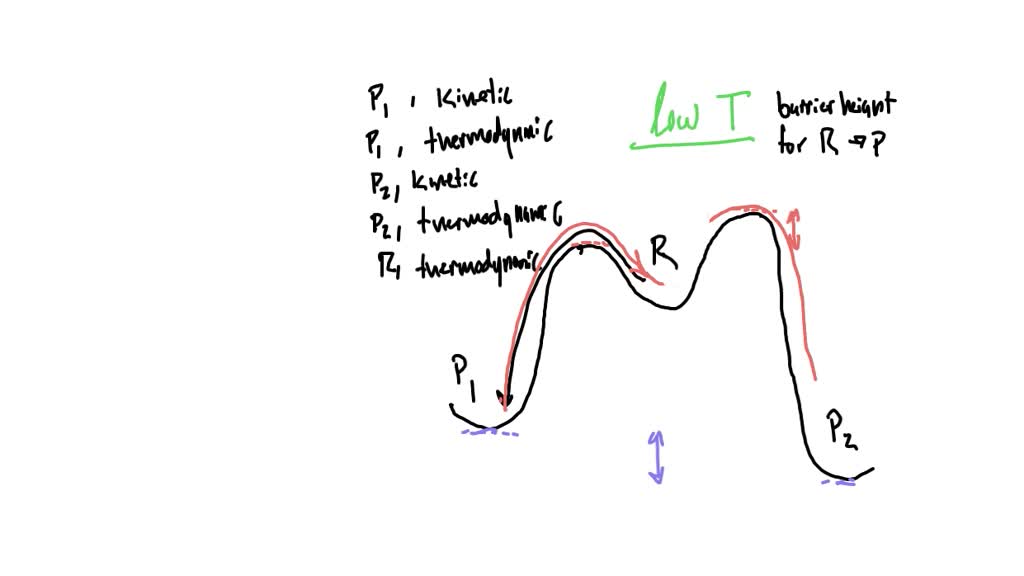 P1, kinetic
P1, thermodynamic
P2, kinetic
P2, thermodynamic
R, thermodynamic
low T
barrier height
for R → P
R
P1
P2